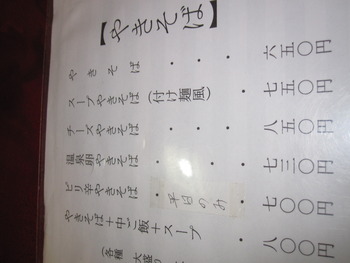 【やきそば】
やきそば・・・・六五〇円
スープやきそば(付け麺風)・七五〇円
チーズやきそば・・・八五〇円
温泉卵やきそば・・・七三〇円
ピリ辛やきそば 平日のみ・七〇〇円
やきそば+中ご飯+スープ・八〇〇円
(各種 大盛り